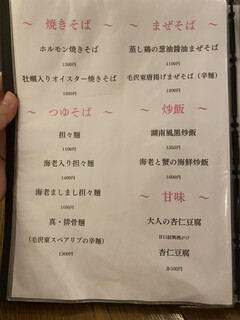 〜 焼きそば 〜
ホルモン焼きそば
1200円
牡蠣入りオイスター焼きそば
1250円
〜 つゆそば 〜
担々麺
1100円
海老入り担々麺
1400円
海老ましまし担々麺
1600円
真・排骨麺
(毛沢東スペアリブの辛麺)
1300円
〜 まぜそば 〜
蒸し鶏の葱油醤油まぜそば
1100円
毛沢東唐揚げまぜそば(辛麺)
1200円
〜 炒飯 〜
湖南風黒炒飯
1350円
海老と蟹の海鮮炒飯
1600円
〜 甘味 〜
大人の杏仁豆腐
甘口紹興酒がけ
杏仁豆腐
各500円